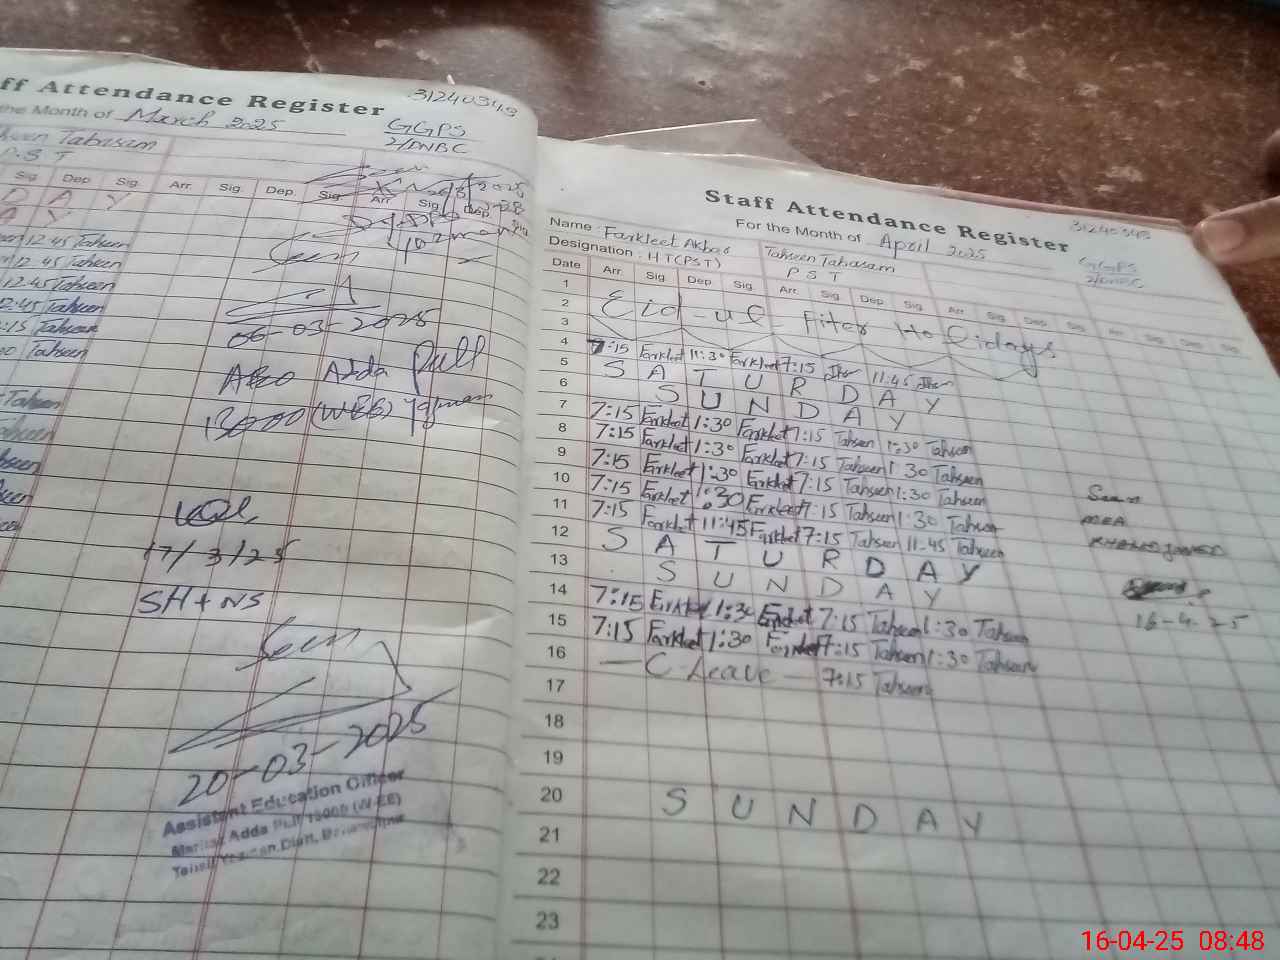 ff Attendance Register
31240348
the Month of March 2025
GGPS
2/DNBC
hseen Tabasam
P.S T
Sig Dep Sig. Arr. Sig. Dep. Sig. Arr Sig. Dep.
D A Y
A Y
12.45 Tahseen
12.45 Tahseen
12.45 Tahseen
2:45 Tahseen
:15 Tahseen
00 Tahseen
Tahseen
06-03-2025
AEO Adda Pull
13000 (WEE) Yazman
17/3/25
SH + NS
20-03-2025
Assistant Education Officer
Markaz Adda Pull 13000 (W-EE)
Staff Attendance Register
31240348
For the Month of April 2025
GGPS
2/DNBC
Name : Farkleet Akbar Tahseen Tabasam
Designation : HT(PST) P S T
Date Arr. Sig Dep Sig. Arr. Sig. Dep. Sig. Arr. Sig. Dep Sig. Arr. Sig. Dep. Sig.
1
2 Eid-ul-Fiter Holidays
3
4 7:15 Farkleet 11:30 Farkleet 7:15 11:45
5 S A T U R D A Y
6 S U N D A Y
7 7:15 Farkleet 1:30 Farkleet 7:15 Tahseen 1:30 Tahseen
8 7:15 Farkleet 1:30 Farkleet 7:15 Tahseen 1:30 Tahseen
9 7:15 Farkleet 1:30 Farkleet 7:15 Tahseen 1:30 Tahseen
10 7:15 Farkleet 1:30 Farkleet 7:15 Tahseen 1:30 Tahseen
11 7:15 Farkleet 11:45 Farkleet 7:15 Tahseen 11-45 Tahseen
12 S A T U R D A Y
13 S U N D A Y
14 7:15 Farkleet 1:30 Farkleet 7:15 Tahseen 1:30 Tahseen
15 7:15 Farkleet 1:30 Farkleet 7:15 Tahseen 1:30 Tahseen
16 — C-Leave — 7:15 Tahseen
17
18
19
20 S U N D A Y
21
22
23
MEA
16-4-25
16-04-25 08:48